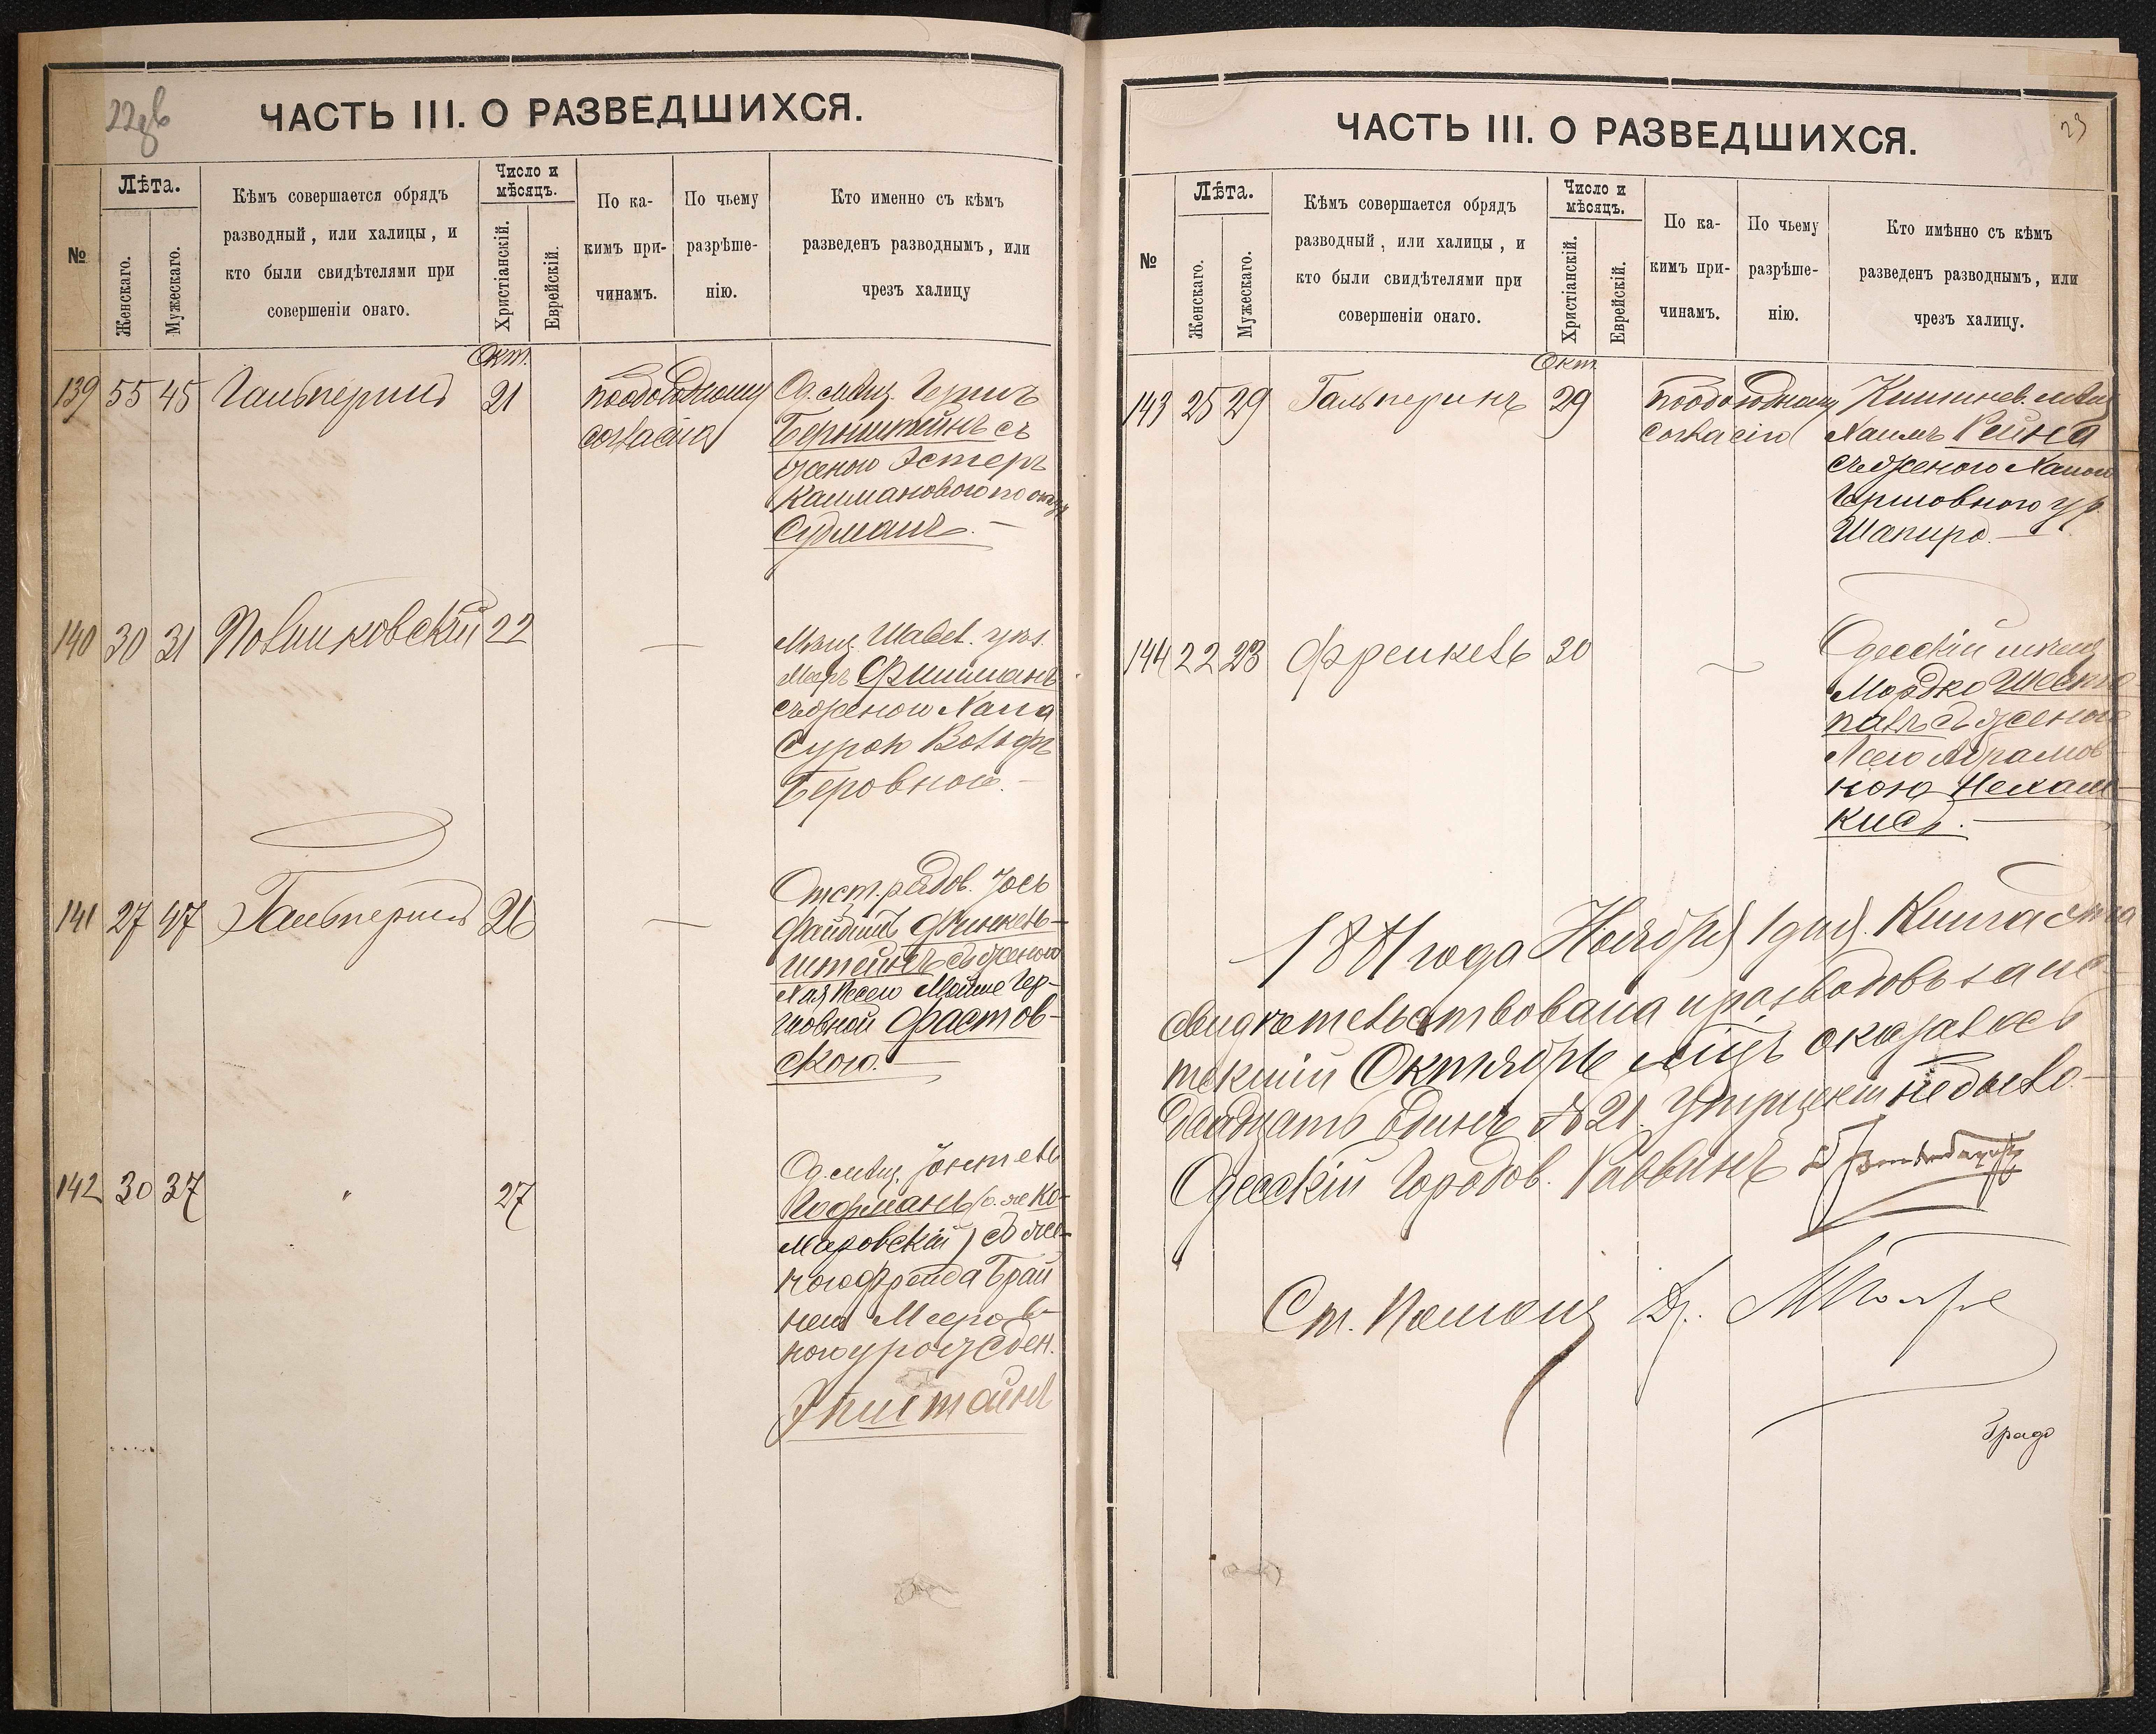 22дв
ЧАСТЬ III. О РАЗВЕДШИХСЯ.
№
Лѣта.
Женскаго.
Мужескаго.
Кѣмъ совершается обрядъ
разводный, или халицы, и
кто были свидѣтелями при
совершеніи онаго.
Число и
мѣсяцъ.
Христіанскій.
Еврейскій.
По ка-
кимъ при-
чинамъ.
По чьему
разрѣше-
нію.
Кто именно съ кѣмъ
разведенъ разводнымъ, или
чрезъ халицу
Окт.
139 55 45 Гальперинъ 21 по обоюдному
согласію
Од. мѣщ. Гершъ
Бернштейнъ съ
женою Эстеръ
Калмановою по отцу
140 30 31 Полинковскій 22 —
Мѣщ. Шавел. уѣз.
Меръ Фишманъ
съ женою Хана
Сурою Вольфъ
Беровною.—
141 27 47 Гальперинъ 26 —
Отст. рядов. Іось
Файвишъ Финкель-
штейнъ съ женою
Хая Песею Мойше Гер-
шовной Фастов-
скою.—
142 30 37 " 27
Од. мѣщ.
Кофманъ (о. же Ко-
маровскій) съ же-
ною Фрейда Брай
Мееров-
ною урожден.
ЧАСТЬ III. О РАЗВЕДШИХСЯ.
23
№
Лѣта.
Женскаго.
Мужескаго.
Кѣмъ совершается обрядъ
разводный, или халицы, и
кто были свидѣтелями при
совершеніи онаго.
Число и
мѣсяцъ.
Христіанскій.
Еврейскій.
По ка-
кимъ при-
чинамъ.
По чьему
разрѣше-
нію.
Кто имѣнно съ кѣмъ
разведенъ разводнымъ, или
чрезъ халицу.
Окт.
143 25 29 Гальперинъ 29 по обоюдному
согласію
Кишинев. мѣщ
Хаимъ Рейна
съ женою Ханою
Гершовною ур.
Шапиро.—
144 22 23 Френкель 30 —
Одесскій мѣщ
Мордко Шесто
палъ съ женою
Лею Абрамов
ною Нехам
кисъ.—
1881 года Ноября 1 дня. Книга эта
свидѣтельствована и разводовъ за ис-
текшій Октябрь мѣцъ оказалось
двадцать одинъ № 21. Упущеній не было.—
Одесскій Городов. Раввинъ
Ст. Помощ Др.
Градо